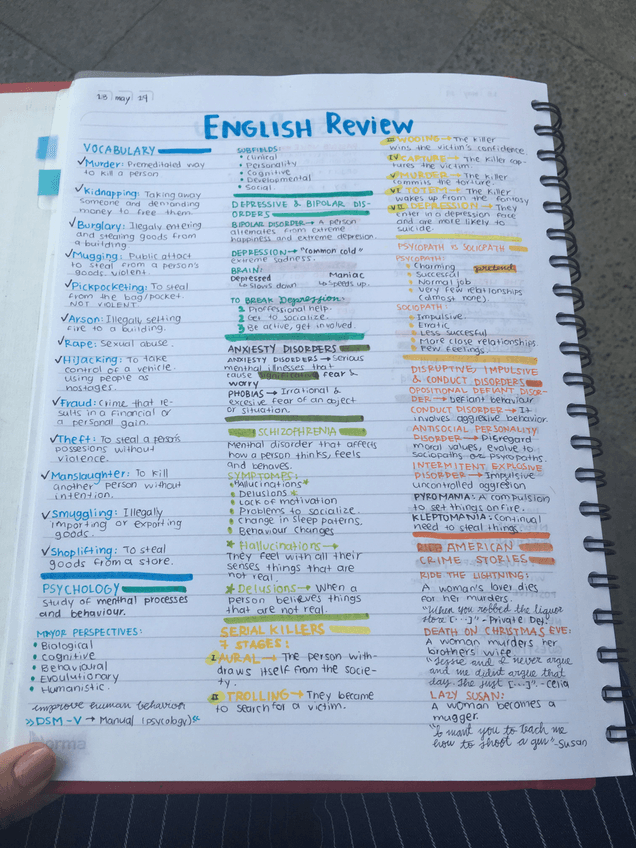 18 | may | 19
ENGLISH Review
VOCABULARY
✓Murder: Premeditated way
to kill a person
✓Kidnapping: Taking away
someone and demanding
money to free them.
✓Burglary: Illegaly entering
and stealing goods from
a building.
✓Mugging: Public attact
to steal from a person's
goods. violent.
✓Pickpocketing: To steal
from the bag/pocket.
NOT VIOLENT
✓Arson: Illegally setting
fire to a building.
✓Rape: Sexual abuse.
✓Hijacking: To take
control of a vehicle
using people as
hostages.
✓Fraud: Crime that re-
sults in a financial or
a personal gain.
✓Theft: To steal a person's
possesions without
violence.
✓Manslaughter: To kill
another person without
intention.
✓Smuggling: Illegally
importing or exporting
goods.
✓Shoplifting: To steal
goods from a store.
PSYCHOLOGY
Study of menthal processes
and behaviour.
MAYOR PERSPECTIVES:
• Biological
• Cognitive
• Behavioural
• Evoulutionary
• Humanistic.
improve human behavior
»DSM-V → Manual (psycology)«
Norma
SUBFIELDS:
• Clinical
• Personality
• Cognitive
• Developmental
• Social.
DEPRESSIVE & BIPOLAR DIS-
ORDERS
BIPOLAR DISORDER → A person
alienates from extreme
happiness and extreme depresion.
DEPRESSION → "common cold"
extreme sadness.
BRAIN:
Depressed Maniac
↳ Slows down ↳ Speeds up.
TO BREAK Depression:
1 Proffesional help.
2 Get to socialize.
3 Be active, get involved.
ANXIESTY DISORDERS
ANXIESTY DISORDERS → Serious
menthal illnesses that
cause fear &
worry
PHOBIAS → Irrational &
excesive fear of an object
or situation.
SCHIZOPHRENIA
Menthal disorder that affects
how a person thinks, feels
and behaves.
SYMPTOMES:
• Hallucinations *
• Delusions *
• Lack of motivation
• Problems to socialize.
• Change in sleep paterns.
• Behaviour Changes
* Hallucinations →
They feel with all their
senses things that are
not real.
* Delusions → When a
person believes things
that are not real.
SERIAL KILLERS
7 STAGES:
I AURAL → The person with-
draws itself from the socie-
ty.
II TROLLING → They become
to search for a victim.
III WOOING → The killer
wins the victim's confidence.
IV CAPTURE → The killer cap-
tures the victim.
V MURDER → The killer
commits the torture.
VI TOTEM → The killer
wakes up from the fantasy
VII DEPRESSION → They
enter in a depression fase
and are more likely to
suicide.
PSYCOPATH vs SOCIOPATH
PSYCOPATH:
• Charming pretends
• Succesful
• Normal job
• Very few relationships
(almost none).
SOCIOPATH
• Impulsive.
• Erratic
• Less succesful
• More close relationships
• Few feelings.
DISRUPTIVE, IMPULSIVE
& CONDUCT DISORDERS
OPOSITIONAL DEFIANT DISOR-
DER → Defiant behaviour.
CONDUCT DISORDER → It
involves aggresive behavior.
ANTISOCIAL PERSONALITY
DISORDER → Disregard
moral values, evolve to
sociopaths or psycopaths.
INTERMITENT EXPLOSIVE
DISORDER → Impulsive
uncontrolled aggresion
PYROMANIA: A compulsion
to set things on fire.
KLEPTOMANIA: Continual
need to steal things
AMERICAN
CRIME STORIES
RIDE THE LIGHTNING:
A woman's lover dies
for her murders.
"When you robbed the liquor
store [...]" - Private Dey.
DEATH ON CHRISTMAS EVE:
A woman murders her
brothers wife
"Jessie and I never argue
and we didnt argue that
day. She just [...]" - Celia
LAZY SUSAN:
A woman becomes a
mugger.
"I want you to teach me
how to shoot a gun" - Susan